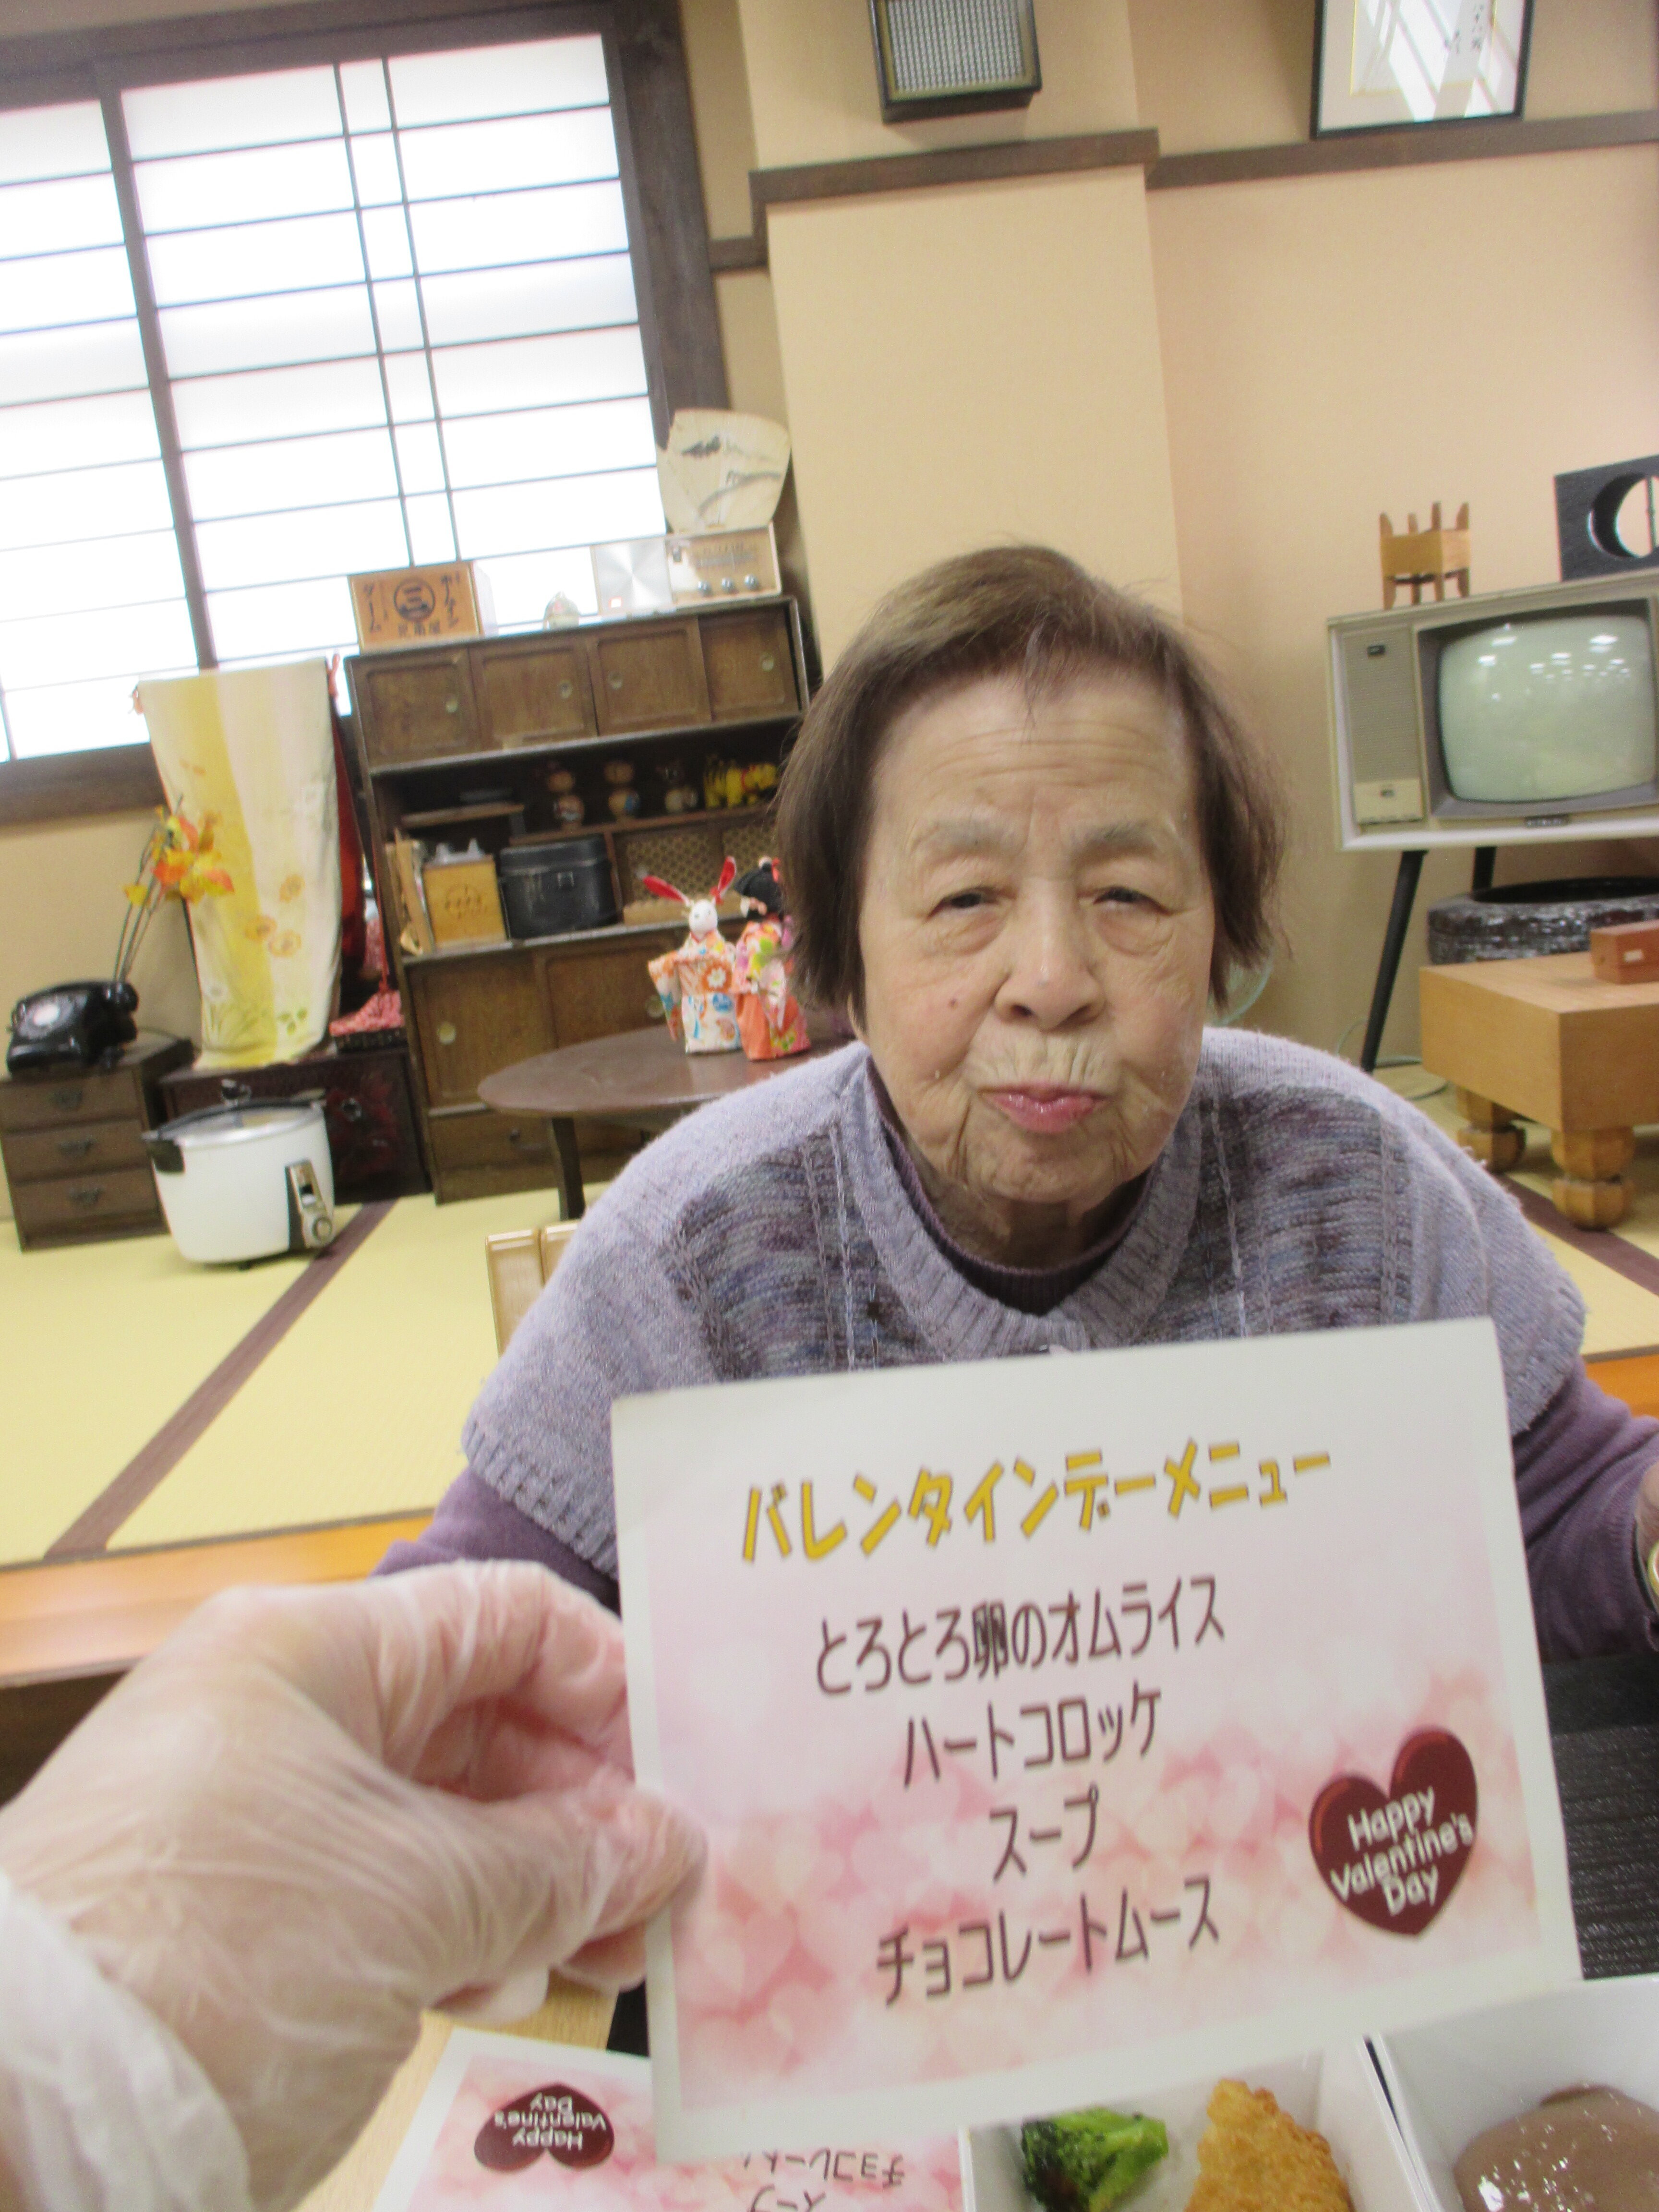 バレンタインデーメニュー
とろとろ卵のオムライス
ハートコロッケ
スープ
チョコレートムース
Happy
Valentine's
Day
Happy
Valentine's
Day